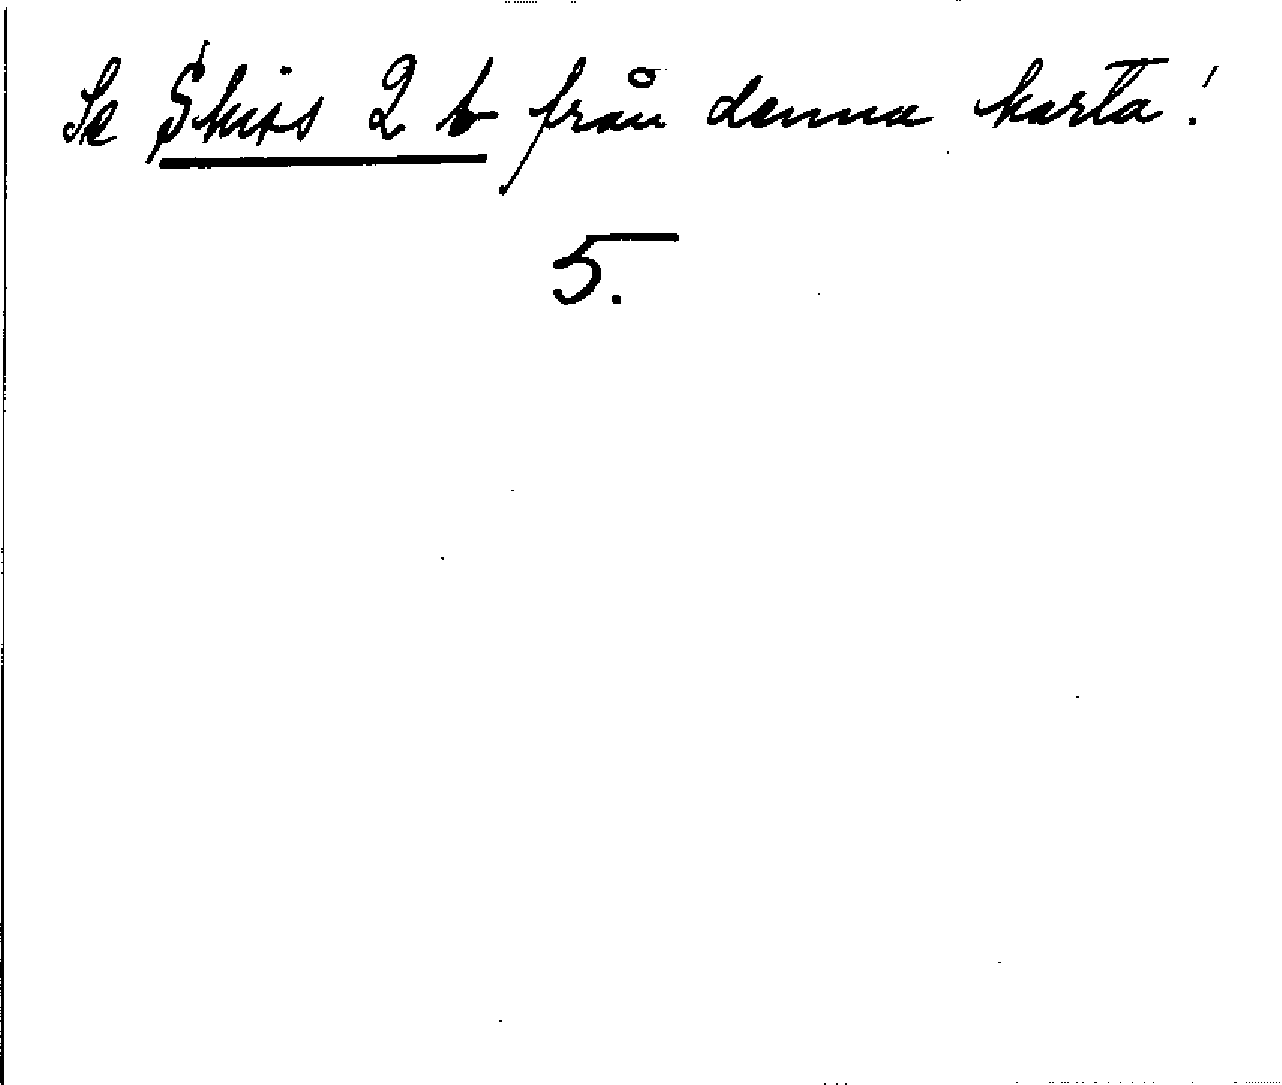 Se Skiss 2 b från denna karta!
5.